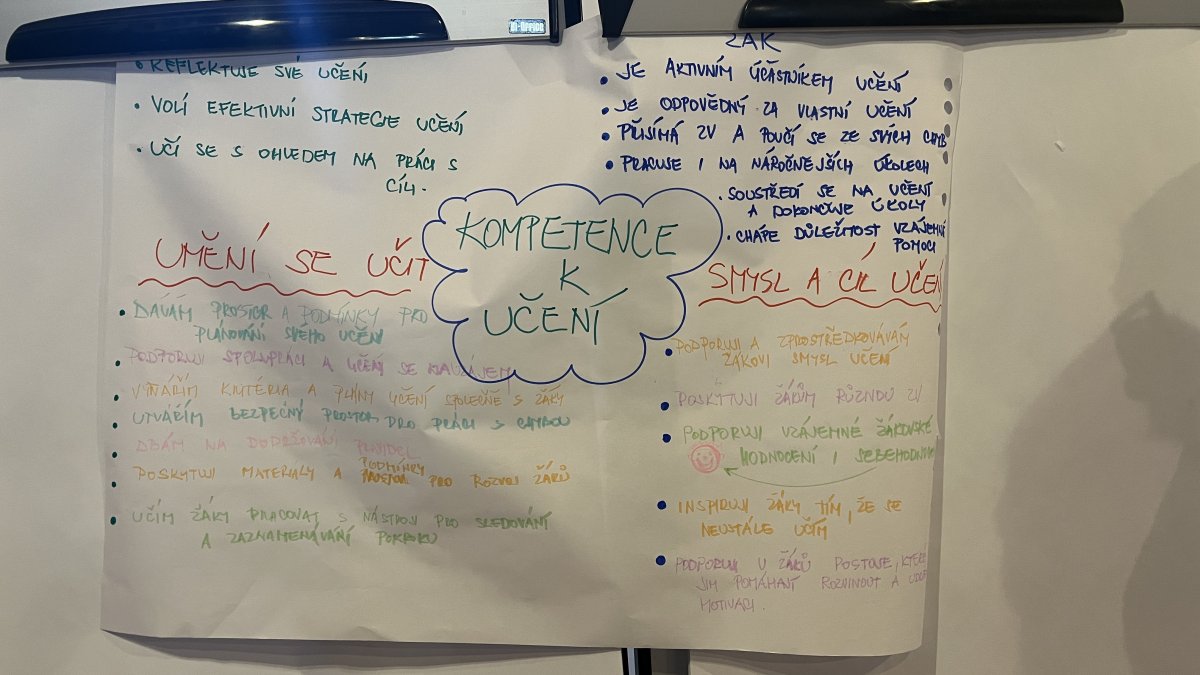 Bi-Office
• REFLEKTUJE SVÉ UČENÍ
• VOLÍ EFEKTIVNÍ STRATEGIE UČENÍ
• UČÍ SE S OHLEDEM NA PRÁCI S
CÍL.
ŽÁK
• JE AKTIVNÍM ÚČASTNÍKEM UČENÍ
• JE ODPOVĚDNÝ ZA VLASTNÍ UČENÍ
• PŘIJÍMÁ ZV A POUČÍ SE ZE SVÝCH CHYB
• PRACUJE I NA NÁROČNEJŠÍCH ÚKOLECH
• SOUSTŘEDÍ SE NA UČENÍ
A DOKONČUJE ÚKOLY
• CHÁPE DŮLEŽITOST VZÁJEMNÉ
POMOCI
KOMPETENCE
K
UČENÍ
UMĚNÍ SE UČIT
• DÁVÁM PROSTOR A PODMÍNKY PRO
PLÁNOVÁNÍ SVÉHO UČENÍ
• PODPORUJI SPOLUPRÁCI A UČENÍ SE NAVZÁJEM
• VYTVÁŘÍM KRITÉRIA A PLÁNY UČENÍ SPOLEČNĚ S ŽÁKY
• UTVÁŘÍM BEZPEČNÝ PROSTOR PRO PRÁCI S CHYBOU
• DBÁM NA DODRŽOVÁNÍ PRAVIDEL
• POSKYTUJI MATERIALY A PODMÍNKY PRO ROZVOJ ŽÁKŮ
• UČÍM ŽÁKY PRACOVAT S NÁSTROJI PRO SLEDOVÁNÍ
A ZAZNAMENÁVÁNÍ POKROKU
SMYSL A CÍL UČENÍ
• PODPORUJI A ZPROSTŘEDKOVÁVÁM
ŽÁKOVI SMYSL UČENÍ
• POSKYTUJI ŽÁKŮM RŮZNOU ZV
• PODPORUJI VZÁJEMNÉ ŽÁKOVSKÉ
HODNOCENÍ I SEBEHODNOCENÍ
• INSPIRUJI ŽÁKY TÍM, ŽE SE
NEUSTÁLE UČÍM
• PODPORUJI U ŽÁKŮ POSTOJE, KTERÉ
JIM POMÁHAJÍ ROZVINOUT A
MOTIVACI.